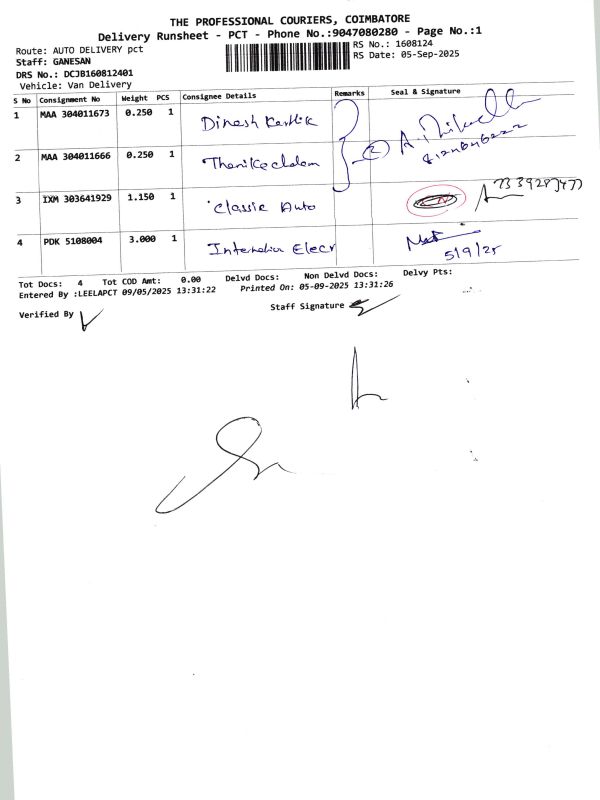 THE PROFESSIONAL COURIERS, COIMBATORE
Delivery Runsheet - PCT - Phone No.:9047080280 - Page No.:1
Route: AUTO DELIVERY pct
RS No.: 1608124
Staff: GANESAN
RS Date: 05-Sep-2025
DRS No.: DCJB160812401
Vehicle: Van Delivery
S No Consignment No Weight PCS Consignee Details Remarks Seal & Signature
1 MAA 304011673 0.250 1 Dinesh Karthik
2 MAA 304011666 0.250 1 2
3 IXM 303641929 1.150 1 Classic Auto
4 PDK 5108004 3.000 1 Elecr
5/9/25
Tot Docs: 4 Tot COD Amt: 0.00 Delvd Docs: Non Delvd Docs: Delvy Pts:
Entered By :LEELAPCT 09/05/2025 13:31:22 Printed On: 05-09-2025 13:31:26
Verified By
Staff Signature